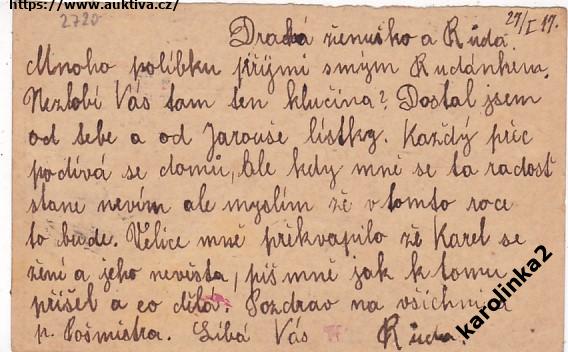 https://www.auktiva.cz/
2720
27/I 17.
Drahá ženuško a Rúda.
Mnoho polibku příjmi smým Rudánkem.
Nezlobí Vás tam ten klučina? Dostal jsem
od tebe a od Jarouše lístky. Každý
podívá se domů, ale kdy mně se ta radost
stane nevím ale myslím že v tomto roce
to bude. Velice mně překvapilo že Karel se
žení a jeho nevěsta, piš mně jak k tomu
přišel a co dělá. Pozdrav na všichni a
p. Pošmistra. Líbá Vás Rúda.
karolinka2